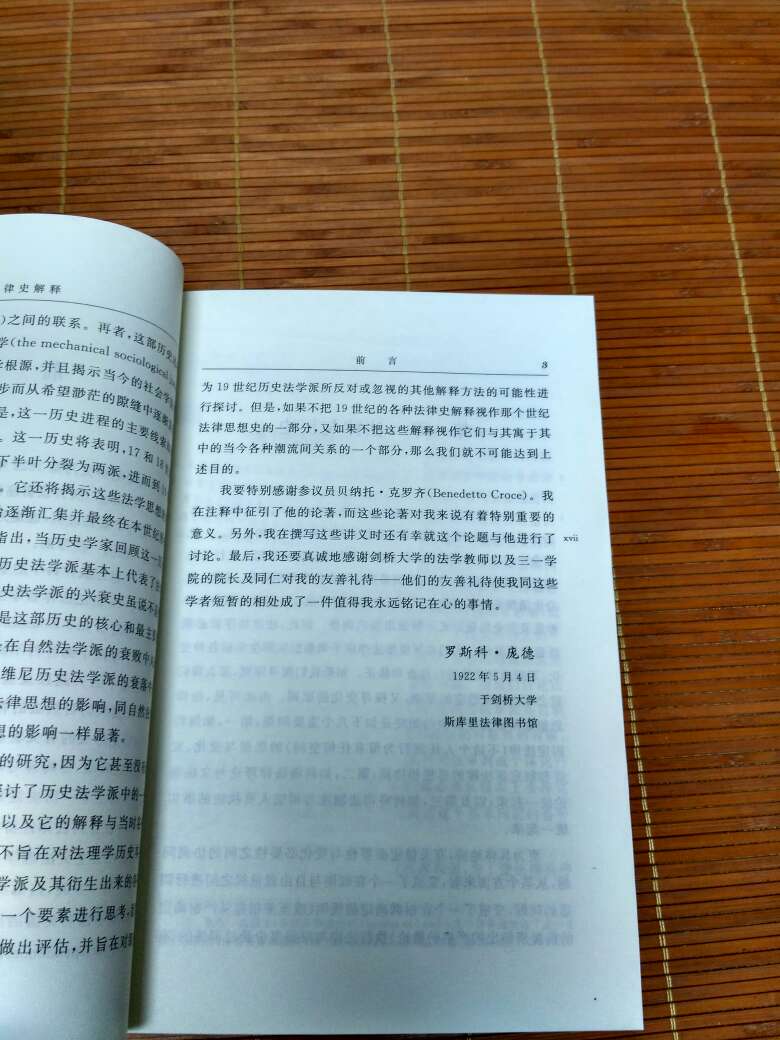 律史解释
之间的联系。再者,这部历史
学(the mechanical sociological
根源,并且揭示当今的社会学
步而从希望渺茫的隙缝中逐渐
是,这一历史进程的主要线索
。这一历史将表明,17和18
下半叶分裂为两派,进而到
。它还将揭示这些法学思想
逐渐汇集并最终在本世纪
指出,当历史学家回顾这一
历史法学派基本上代表了
史法学派的兴衰史虽说不
是这部历史的核心和最主
在自然法学派的衰败中
维尼历史法学派的衰落
律思想的影响,同自然
想的影响一样显著。
的研究,因为它甚至没
讨了历史法学派中的一
以及它的解释与当时
不旨在对法理学历史
学派及其衍生出来的
一个要素进行思考,
做出评估,并旨在对
前 言 3
为19世纪历史法学派所反对或忽视的其他解释方法的可能性进
行探讨。但是,如果不把19世纪的各种法律史解释视作那个世纪
法律思想史的一部分,又如果不把这些解释视作它们与其寓于其
中的当今各种潮流间关系的一个部分,那么我们就不可能达到上
述目的。
我要特别感谢参议员贝纳托·克罗齐(Benedetto Croce)。我
在注释中征引了他的论著,而这些论著对我来说有着特别重要的
意义。另外,我在撰写这些讲义时还有幸就这个论题与他进行了 xvii
讨论。最后,我还要真诚地感谢剑桥大学的法学教师以及三一学
院的院长及同仁对我的友善礼待——他们的友善礼待使我同这些
学者短暂的相处成了一件值得我永远铭记在心的事情。
罗斯科·庞德
1922年5月4日
于剑桥大学
斯库里法律图书馆